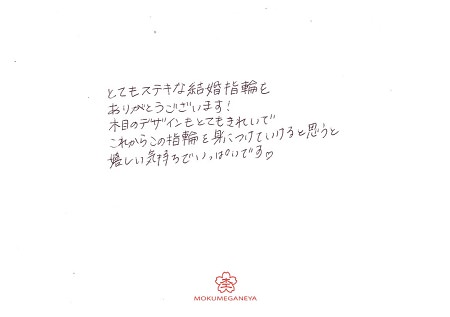 とてもステキな結婚指輪を
ありがとうございます!
木目のデザインもとてもきれいで
これからこの指輪を身につけていけると思うと
嬉しい気持ちでいっぱいです♡
MOKUMEGANEYA